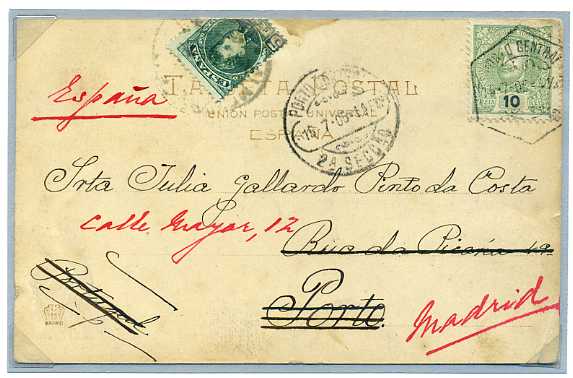 España
TARJETA POSTAL
UNION POSTAL UNIVERSAL
ESPAÑA
ESPAÑA
10
2A SECÇÃO
Srta Julia Gallardo Pinto da Costa
Calle Mayor, 12
Rua da
Porto
Portugal
Madrid